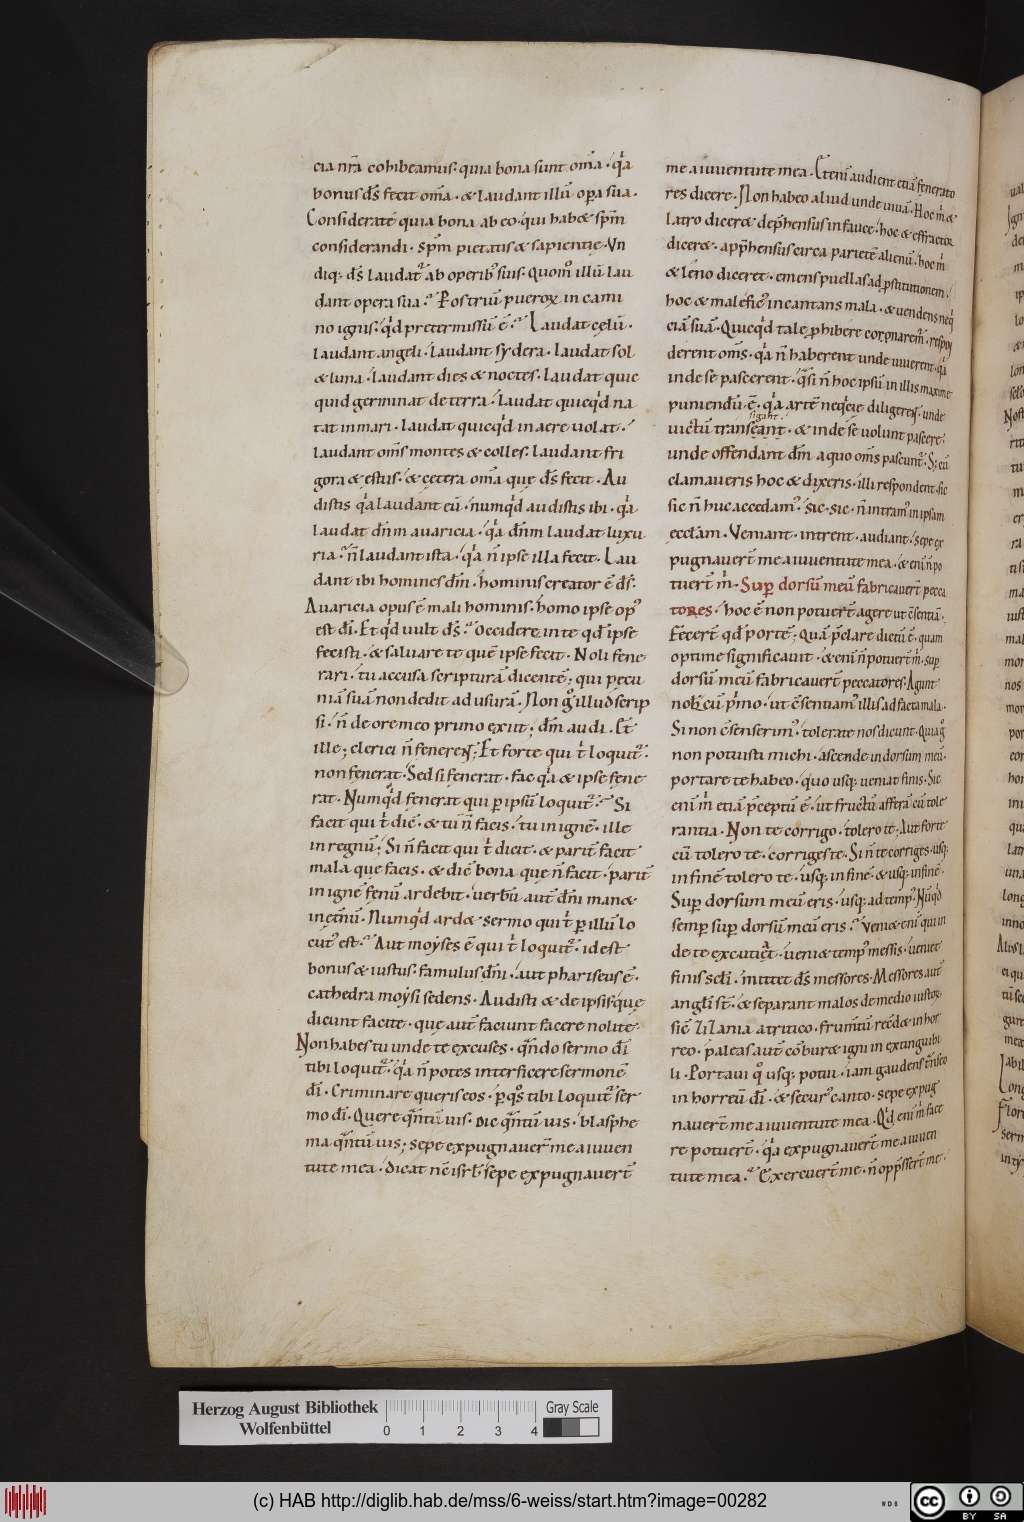 cia nr̄a cohibeamus· quia bona sunt om̄a· qͥa
bonus d̄s fecit om̄a· & laudant illū oꝑa sua·
Considerate quia bona ab eo· qui habet sp̄m
considerandi· sp̄m pietatis & sapientie· Vn
diq; d̄s laudat᷑ ab operib; suis· quom̊ illū lau
dant opera sua? Post ruū pueroꝝ in cami
no ignis· qͥd pretermissū ē? Laudat cęlū·
laudant angeli· laudant sydera· laudat sol
& luna· laudant dies & noctes· laudat quic
quid germinat de terra· laudat quicqͥd na
tat in mari· laudat quicqͥd in aere uolat·
laudant om̄s montes & colles· laudant fri
gora & ęstus· & cętera om̄a que d̄s fecit· Au
distis qͥa laudant eū· numqͥd audistis ibi· qͥa
laudat dn̄m auaricia· qͥa dn̄m laudat luxu
ria· n̄ laudant ista· qͥa n̄ ipse illa fecit· Lau
dant ibi homines dm̄· hominis creator ē d̄s·
Auaricia opus ē mali hominis· homo ipse op᷒
est dī· Et qͥd uult d̄s? Occidere in te qd̄ ipse
fecisti· & saluare te quē ipse fecit· Noli fene
rari· tu accusa scripturā dicentē; qui pecu
niā suā non dedit ad usurā· Non g̊ illud scrip
si· n̄ de ore meo pruno exiit; dm̄ audi· Et
ille; clerici n̄ fenerent; Et forte qui tͥ loquit᷑·
non fenerat· Sed si fenerat· fac qͥa & ipse fene
rat· Numqͥd fenerat qui ꝑ ipsū loquit᷑? Si
facit qui tͥ dic̄· & tu n̄ facis· tu in ignē· ille
in regnū· Si n̄ facit qui tͥ dicit· & parit̄ facit
mala que facis· & dic̄ bona que n̄ facit· parit̄
in ignē fenū ardebit· uerbū aut̄ dn̄i manet
in ęt̄nū· Numqͥd ardet sermo qui tͥ ꝑ illū lo
cut᷒ est? Aut moyses ē qui tͥ loquit᷑· id est
bonus & iustus· famulus dn̄i· aut phariseus ē·
cathedra moysi sedens· Audisti & de ipsis· que
dicunt facite· que aut̄ faciunt facere nolite·
Non habes tu unde te excuses· qn̄do sermo dī
tibi loquit᷑· qͥa n̄ potes interficere sermonē
dī· Criminare queris eos· ꝑ qͦs tibi loquit᷑ ser
mo dī· Quere qn̄tū uis· dic qn̄tū uis· blasphe
ma qn̄tū uis; sepe expugnauer̄ me a iuuen
tute mea· dicat nc̄ isrl̄· sepe expugnauer̄t
me a iuuentute mea· Etenī audient etiā fenerato
res dicere· Non habeo aliud unde uiuā· Hoc mͥ &
latro diceret dep̄hensus in fauce· hoc & effractor
diceret· app̄hensus circa parietē alienū· hoc mͥ
& leno diceret· emens puellas ad ꝓstitutionem·
hoc & malefic᷒ incantans mala· & uendens neqͥ
ciā suā· Quicqͥd tale ꝓhibere conaremͬ· respon
derent om̄s· qͥa n̄ haberent unde uiuerent· qͥa
inde se pascerent· quasi n̄ hoc ipsū in illis maxime
puniendū ē· qͥa artē neqͥcie diligerent· unde
sigunt
uictū transeant· & inde se uolunt pascere·
unde offendant dm̄ a quo om̄s pascunt᷑· S; cū
clamaueris hoc & dixeris· illi respondent· sic
sic n̄ huc accedam᷒· sic· sic· n̄ intram᷒ in ipsam
eccłam· Veniant· intrent· audiant· sepe ex
pugnauer̄t me a iuuentute mea· & enī n̄ po
tuer̄t mͥ· Suꝑ dorsū meū fabricauer̄t pecca
tores· hoc ē non potuer̄t agere ut c̄sentiā·
Fecer̄t qd̄ portē; Quā p̄clare dictū ē· quam
optime significauit· & enī n̄ potuer̄t mͥ· suꝑ
dorsū meū fabricauer̄t peccatores· Agunt
nob᷒ cū pͥmo· ut c̄sentiam᷒ illis ad facta mala·
Si non c̄senserim᷒· tolerate nos dicunt· Quia g̊
non potuisti michi· ascende in dorsum meū·
portare te habeo· quo usq; ueniat finis· Sic
enī mͥ etiā p̄ceptū ē· ut fructū afferā cū tole
rantia· Non te corrigo· tolero te; Aut forte
cū tolero te· corrigeste· Si n̄ te corriges· usq;
in finē tolero te· usq; in finē· & usq; in finē·
Suꝑ dorsum meū eris· usq; ad temp᷒· Nūqͥd
semꝑ suꝑ dorsū meū eris? Veniet enī qui in
de te excutiet· ueniet temp᷒ messis· ueniet
finis scłi· mittet d̄s messores· Messores aut̄
angłi st̄· & separant malos de medio iustoꝝ·
sic̄ zizania a tritico· frum̄tū recōdet in hor
reo· paleas aut̄ cōburet igni in extinguibi
li· Portaui qͦ usq; potui· iam gaudens trāseo
in horreū dī· & secur᷒ canto· sepe expug
nauer̄t me a iuuentute mea· Qͥd enī mͥ face
re potuer̄t· qͥa expugnauer̄t me a iuuen
tute mea? Exercuer̄t me· n̄ opp̄sser̄t me·
Herzog August Bibliothek
Wolfenbüttel
0 1 2 3 4
Gray Scale
(c) HAB http://diglib.hab.de/mss/6-weiss/start.htm?image=00282
WDB
cc BY SA